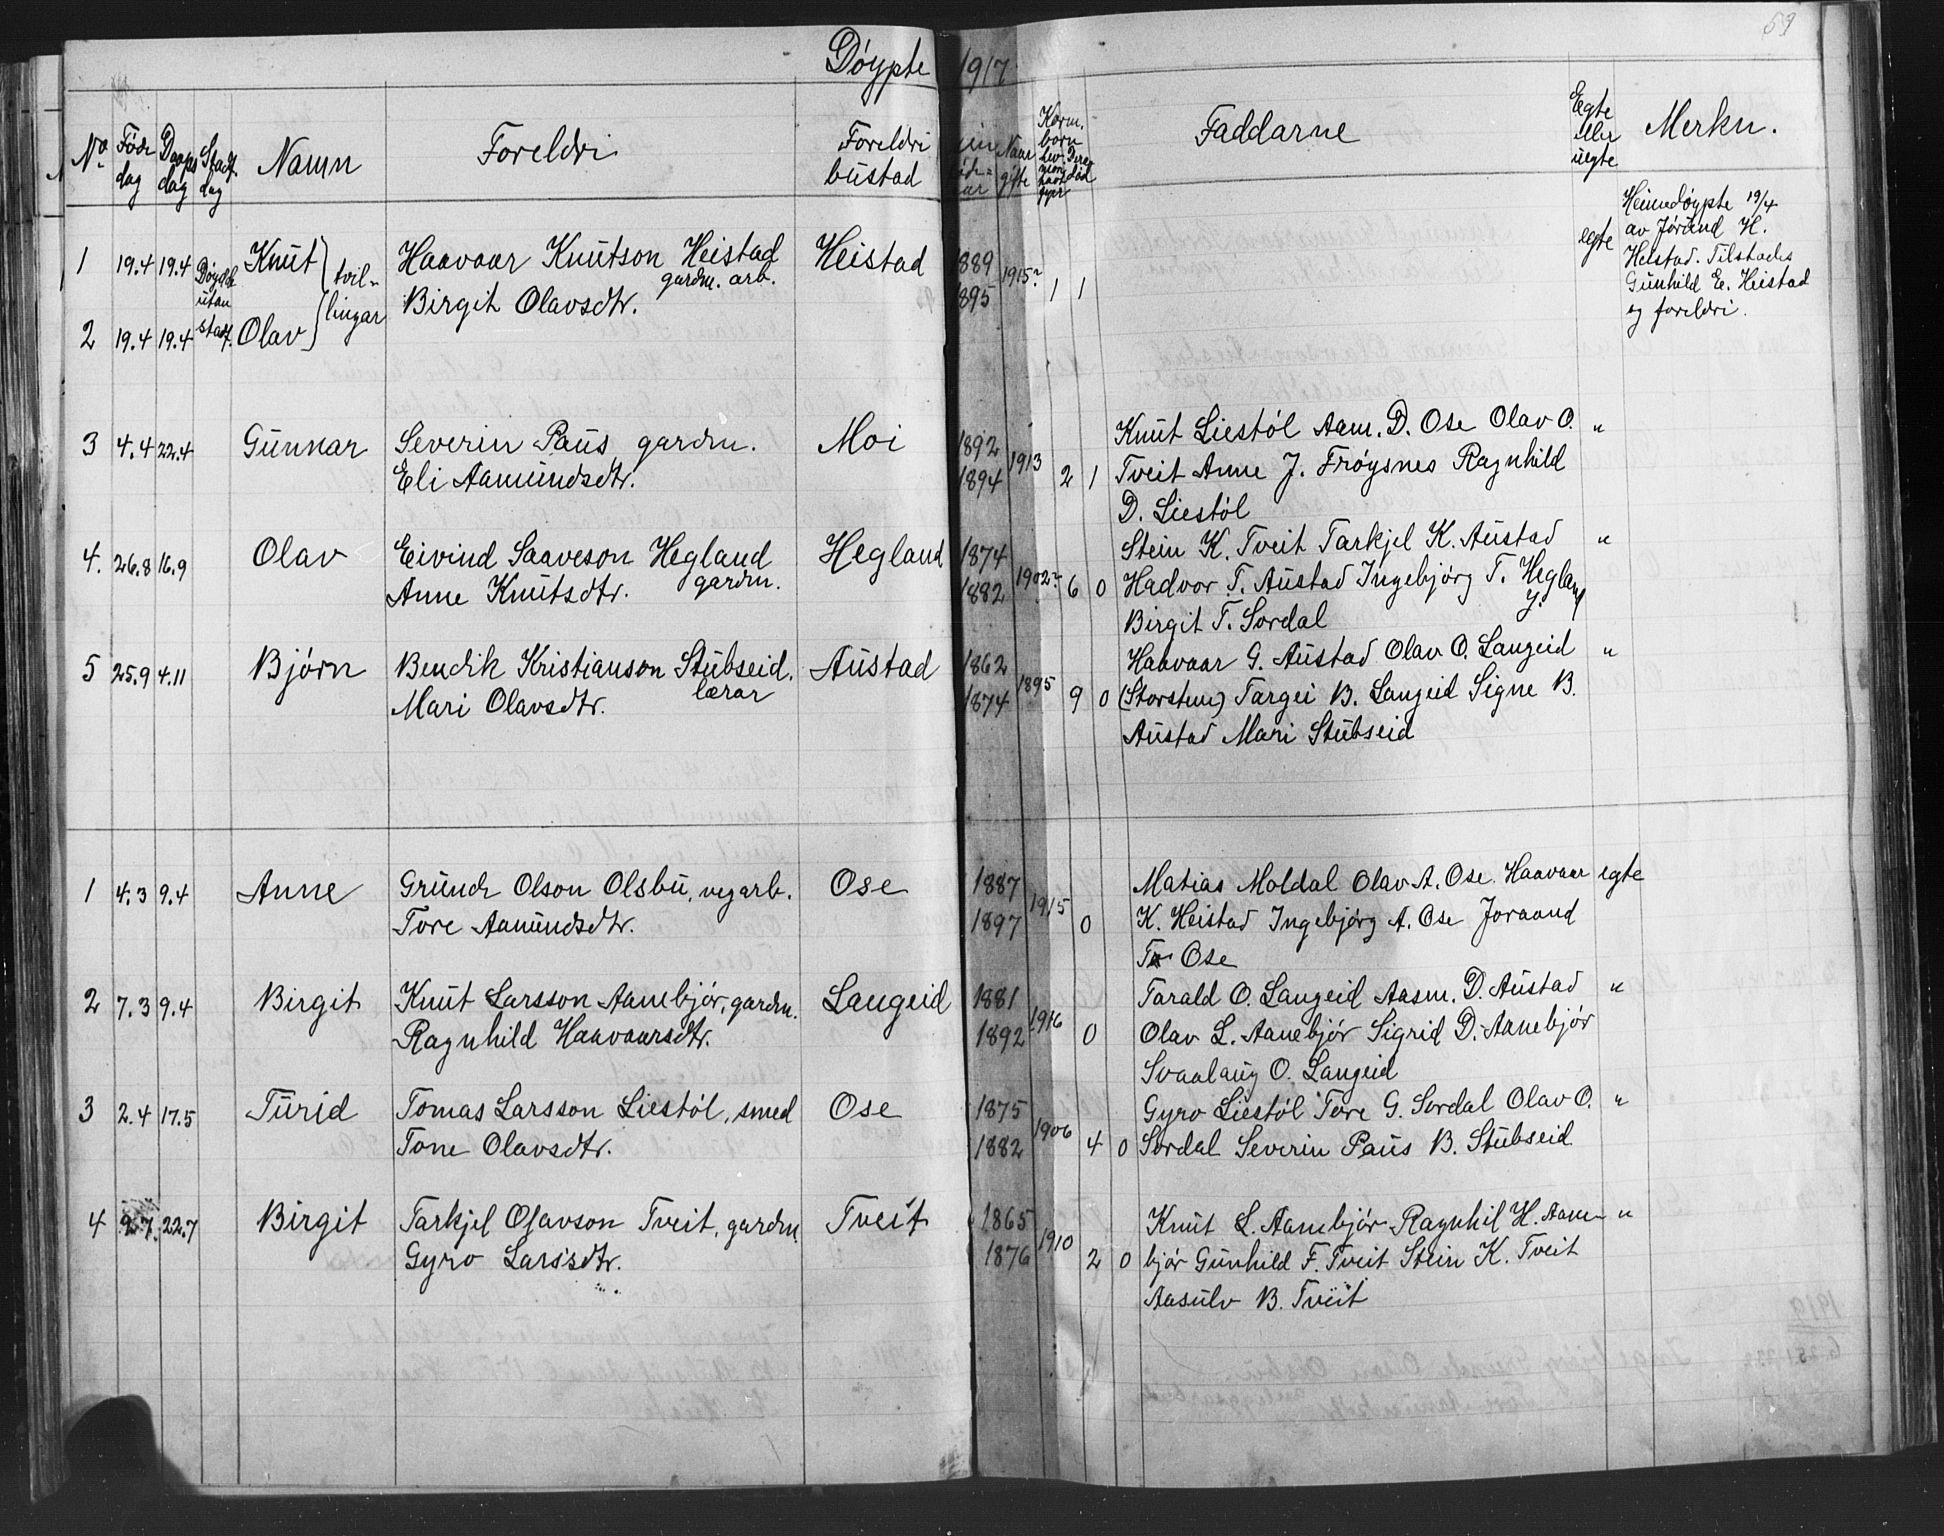 59
Døypte 1917
No Føde dag Daaps dag Stadf. dag Namn Foreldri Foreldri bustad Naar gifte Faddarne Egte eller uegte Merkn.
1 19.4 19.4 Døydde utan stadf. Knut } tvil- Haavaar Knutson Heistad gardm. arb. Heistad 1889 1915 1 1 egte Heimedøypte 19/4
2 19.4 19.4 Olav } lingar Birgit Olavsdtr. 1895 av Jórund H.
Heistad. Tilstades
Gunhild E. Heistad
og foreldri.
3 4.4 22.4 Gunnar Severin Paus gardm. Moi 1892 1913 Knut Liestól Aam. D. Ose Olav O. "
Eli Aamundsdtr. 1894 2 1 Tveit Anne J. Frøysnes Ragnhild
D. Liestól
4. 26.8 16.9 Olav Eivind Saaveson Hegland Hegland 1874 Stein K. Tveit Tarkjel K. Austad "
Anne Knutsdtr. gardm. 1882 1902 6 0 Hadvor T. Austad Ingebjørg T. Hegland
Birgit T. Sordal y.
5 25.9 4.11 Bjørn Bendik Kristianson Stubseid. Austad 1862 1895 Haavaar G. Austad Olav O. Langeid "
Mari Olavsdtr. lærar 1874 9 0 (Storstene) Targei B. Langeid Signe B.
Austad Mari Stubseid
1 4.3 9.4 Anne Grunde Olson Olsbu, vegarb. Ose 1887 1915 Matias Moldal Olav A. Ose Haavaar egte
Tore Aamundsdtr. 1897 0 K. Heistad Ingebjørg A. Ose Joraand
Ose
2 7.3 9.4 Birgit Knut Larsson Aanebjór, gardm. Langeid 1881 1916 Tarald O. Langeid Aasm. D. Austad "
Ragnhild Haavaarsdtr. 1892 0 Olav L. Aanebjór Sigrid D. Aanebjór
Svaalaug O. Langeid
3 2.4 17.5 Turid Tomas Larsson Liestól, smed Ose 1875 1906 Gyro Liestól Tore G. Sordal Olav O. "
Tone Olavsdtr. 1882 4 0 Sordal Severin Paus B. Stubseid
4 9.7. 22.7 Birgit Tarkjel Olavson Tveit, gardm. Tveit 1865 1910 Knut L. Aanebjór Ragnhil H. Aane- "
Gyro Larsdtr. 1876 2 0 bjór Gunhild F. Tveit Stein K. Tveit
Aasulv B. Tveit